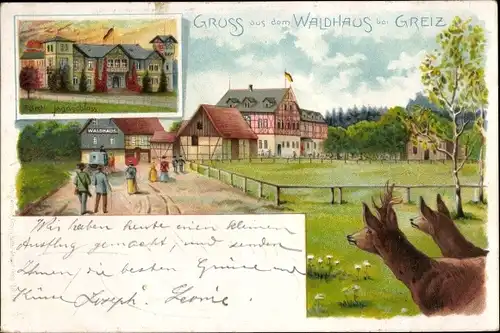 GRUSS aus dem WALDHAUS bei GREIZ
Jagdschloss
WALDHAUS
Wir haben heute einen kleinen
Ausflug gemacht, und senden
Ihnen, die besten Grüsse und
Küsse Joseph. Leonie.